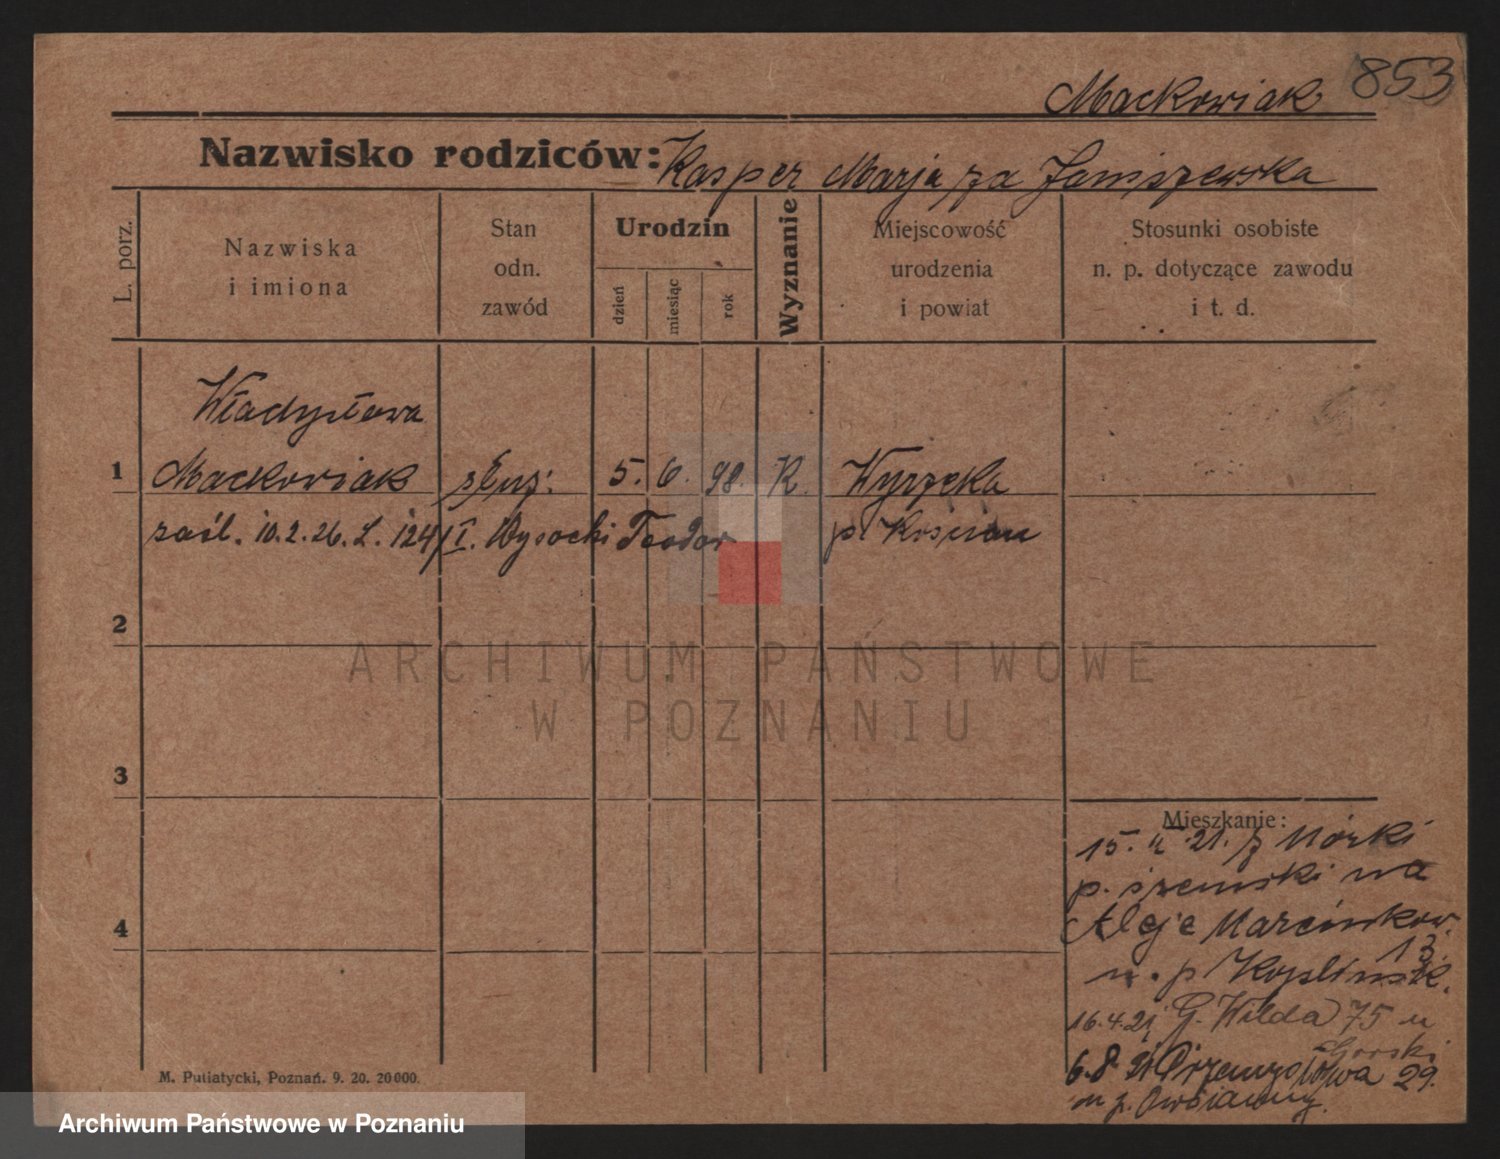 Mackowiak 853
Nazwisko rodziców: Kasper Marja za Janiszewska
L. porz.
Nazwiska
i imiona
Stan
odn.
zawód
Urodzin
dzień
miesiąc
rok
Wyznanie
Miejscowość
urodzenia
i powiat
Stosunki osobiste
n. p. dotyczące zawodu
i t. d.
Władysława
1 Mackowiak służ: 5. 6. 98. K. Wyrzeka
zaśl. 10.2.26. L. 124/I. Wysocki Teodor p. Kościan
2
3
4
Mieszkanie:
15. 21. z Mórki
p. szremski na
Aleje Marcinkow.
13.
u. p
16.4.21 G. Wilda 75 u
Gorski
6.8 21 Przemysłowa 29.
u p.
M. Putiatycki, Poznań. 9. 20. 20 000.
ARCHIWUM PAŃSTWOWE
W POZNANIU
Archiwum Państwowe w Poznaniu